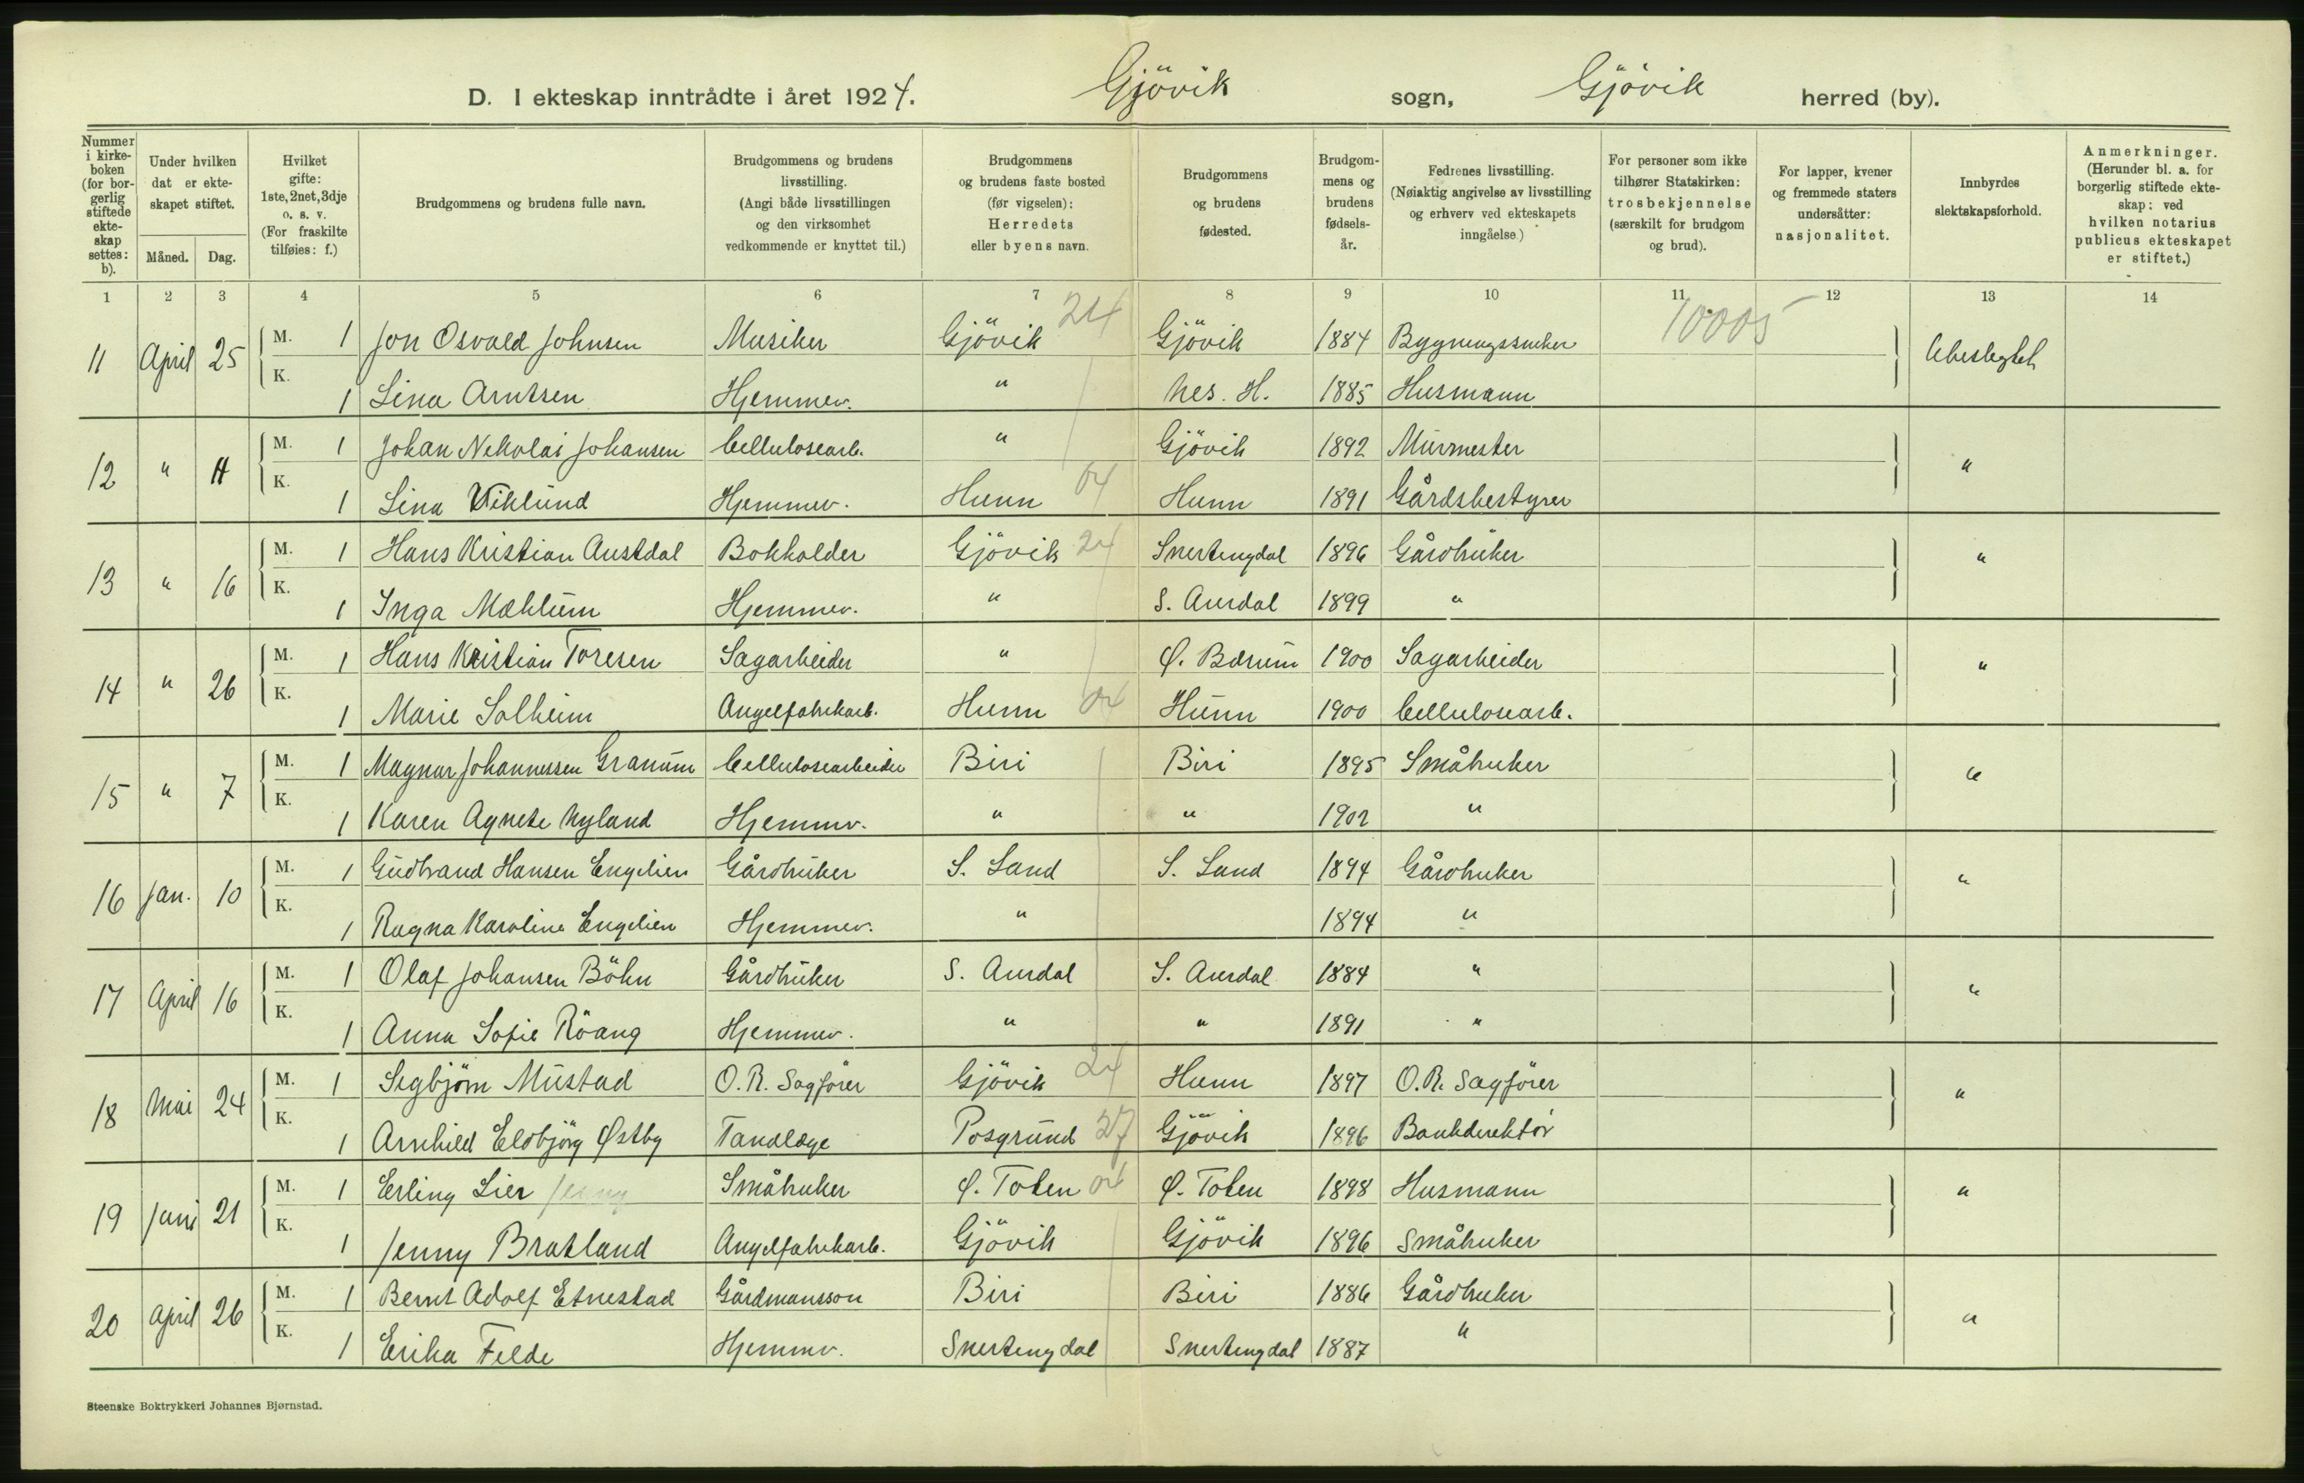 D. I ekteskap inntrådte i året 1924. Gjövik sogn, Gjövik herred (by).
Nummer i kirke-boken (for bor-gerlig stiftede ekte-skap settes: b).
Under hvilken dat er ekte-skapet stiftet.
Måned. Dag.
Hvilket gifte: 1ste, 2net, 3dje o. s. v. (For fraskilte tilføies: f.)
Brudgommens og brudens fulle navn.
Brudgommens og brudens livsstilling. (Angi både livsstillingen og den virksomhet vedkommende er knyttet til.)
Brudgommens og brudens faste bosted (før vigselen): Herredets eller byens navn.
Brudgommens og brudens fødested.
Brudgom-mens og brudens fødsels-år.
Fedrenes livsstilling. (Nøiaktig angivelse av livsstilling og erhverv ved ekteskapets inngåelse.)
For personer som ikke tilhører Statskirken: trosbekjennelse (særskilt for brudgom og brud).
For lapper, kvener og fremmede staters undersåtter: nasjonalitet.
Innbyrdes slektskapsforhold.
Anmerkninger. (Herunder bl. a. for borgerlig stiftede ekte-skap: ved hvilken notarius publicus ekteskapet er stiftet.)
1 2 3 4 5 6 7 8 9 10 11 12 13 14
11 April 25 M. 1 Jon Osvald Johnsen Musiker Gjövik 24 Gjövik 1884 Bygningssnekker 10005 Ubeslegtet
K. 1 Lina Arntsen Hjemmev. " Nes. H. 1885 Husmann
12 " 4 M. 1 Johan Nikolai Johansen Cellulosearb. " Gjövik 1892 Murmester "
K. 1 Lina Viklund Hjemmev. Hunn 04 Hunn 1891 Gårdsbestyrer
13 " 16 M. 1 Hans Kristian Austdal Bokholder Gjövik 24 Snertingdal 1896 Gårdbruker "
K. 1 Inga Mæhlum Hjemmev. " S. Aurdal 1899 "
14 " 26 M. 1 Hans Kristian Toresen Sagarbeider " Ø. Bærum 1900 Sagarbeider "
K. 1 Marie Solheim Angelfabrikarb. Hunn 04 Hunn 1900 Cellulosearb.
15 " 7 M. 1 Magnar Johannessen Granum Cellulosearbeider Biri Biri 1895 Småbruker "
K. 1 Karen Agnete Nyland Hjemmv. " " 1902 "
16 Jan. 10 M. 1 Gudbrand Hansen Engelien Gårdbruker S. Land S. Land 1894 Gårdbruker "
K. 1 Ragna Karoline Engelien Hjemmev. " 1894 "
17 April 16 M. 1 Olaf Johansen Böhn Gårdbruker S. Aurdal S. Aurdal 1884 " "
K. 1 Anna Sofie Röang Hjemmev. " " 1891 "
18 Mai 24 M. 1 Sigbjørn Mustad O.R. Sagfører Gjövik 24 Hunn 1897 O.R. Sagfører "
K. 1 Arnhild Eldbjörg Østby Tandlæge Posgrund 27 Gjövik 1896 Bankdirektör
19 Juni 21 M. 1 Erling Lier Jenny Småbruker Ø. Toten 04 Ø. Toten 1898 Husmann "
K. 1 Jenny Bratland Angelfabrikarb. Gjövik Gjövik 1896 Småbruker
20 April 26 M. 1 Bernt Adolf Etnestad Gårdmannssön Biri Biri 1886 Gårdbruker "
K. 1 Erika Felde Hjemmv. Snertingdal Snertingdal 1887 "
Steenske Boktrykkeri Johannes Bjørnstad.